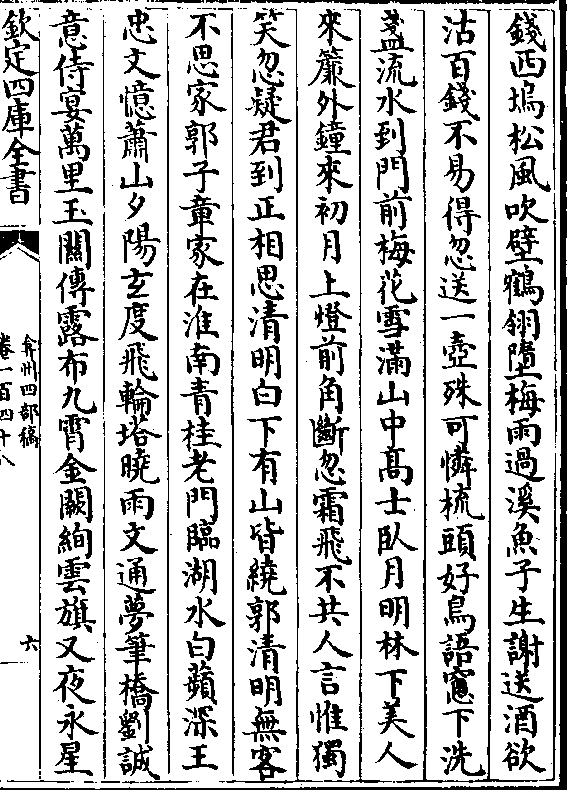 錢西塢松風吹壁鶴翎墮梅雨過溪魚子生謝送酒欲
沽百錢不易得忽送一壺殊可憐梳頭好鳥語窻下洗
盞流水到門前梅花雪滿山中高士臥月明林下美人
來簾外鐘來初月上燈前角斷忽霜飛不共人言惟獨
笑忽疑君到正相思清明白下有山皆繞郭清明無客
不思家郭子章家在淮南青桂老門臨湖水白蘋深王
忠文憶蕭山夕陽玄度飛輪塔曉雨文通夢筆橋劉誠
意侍宴萬里玉關傳露布九霄金闕絢雲旗又夜永星
欽定四庫全書
弇州四部稿
卷一百四十八
六